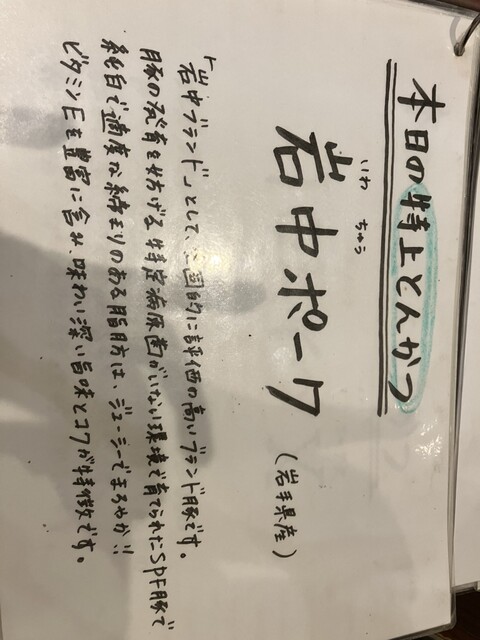 本日の特上とんかつ
いわ ちゅう
岩中ポーク
(岩手県産)
「岩中ブランド」として、全国的に評価の高いブランド豚です。
豚の発育を妨げる特定病原菌がいない環境で育てられたSPF豚で
純白で適度な締まりのある脂肪は、ジューシーでまろやか!!
ビタミンEを豊富に含み、味わい深い旨味とコクが特徴です。